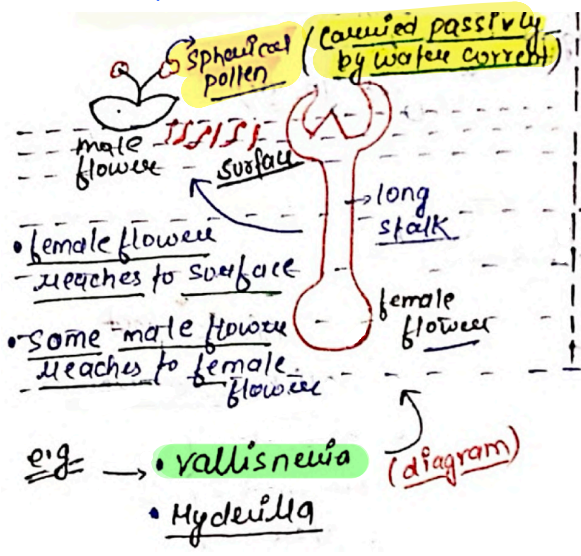 spherical pollen (carried passivly by water current)
male flower
surface
long stalk
• female flower reaches to surface
female flower
• some male flower reaches to female flower
e.g → • vallisneria (diagram)
• Hyderilla